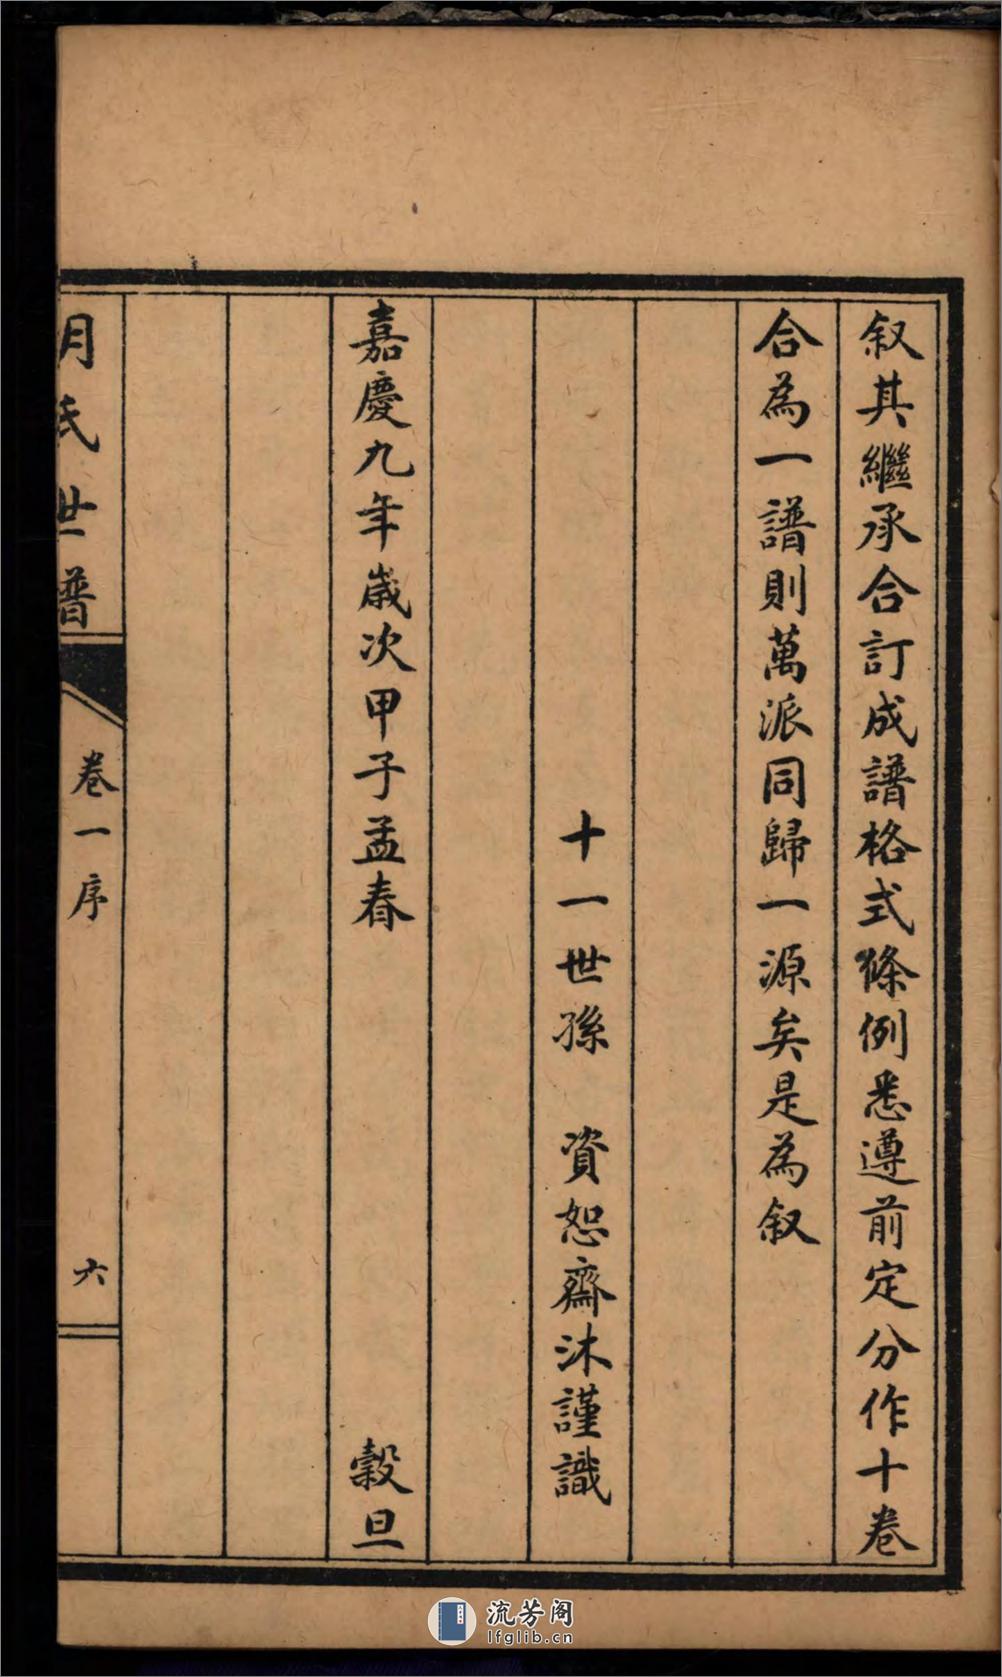 叙其繼承合訂成譜格式條例悉遵前定分作十卷
合為一譜則萬派同歸一源矣是為叙
十一世孫 資恕齋沐謹識
嘉慶九年歲次甲子孟春 穀旦
氏世譜
卷一序
六
流芳阁
lfglib.cn